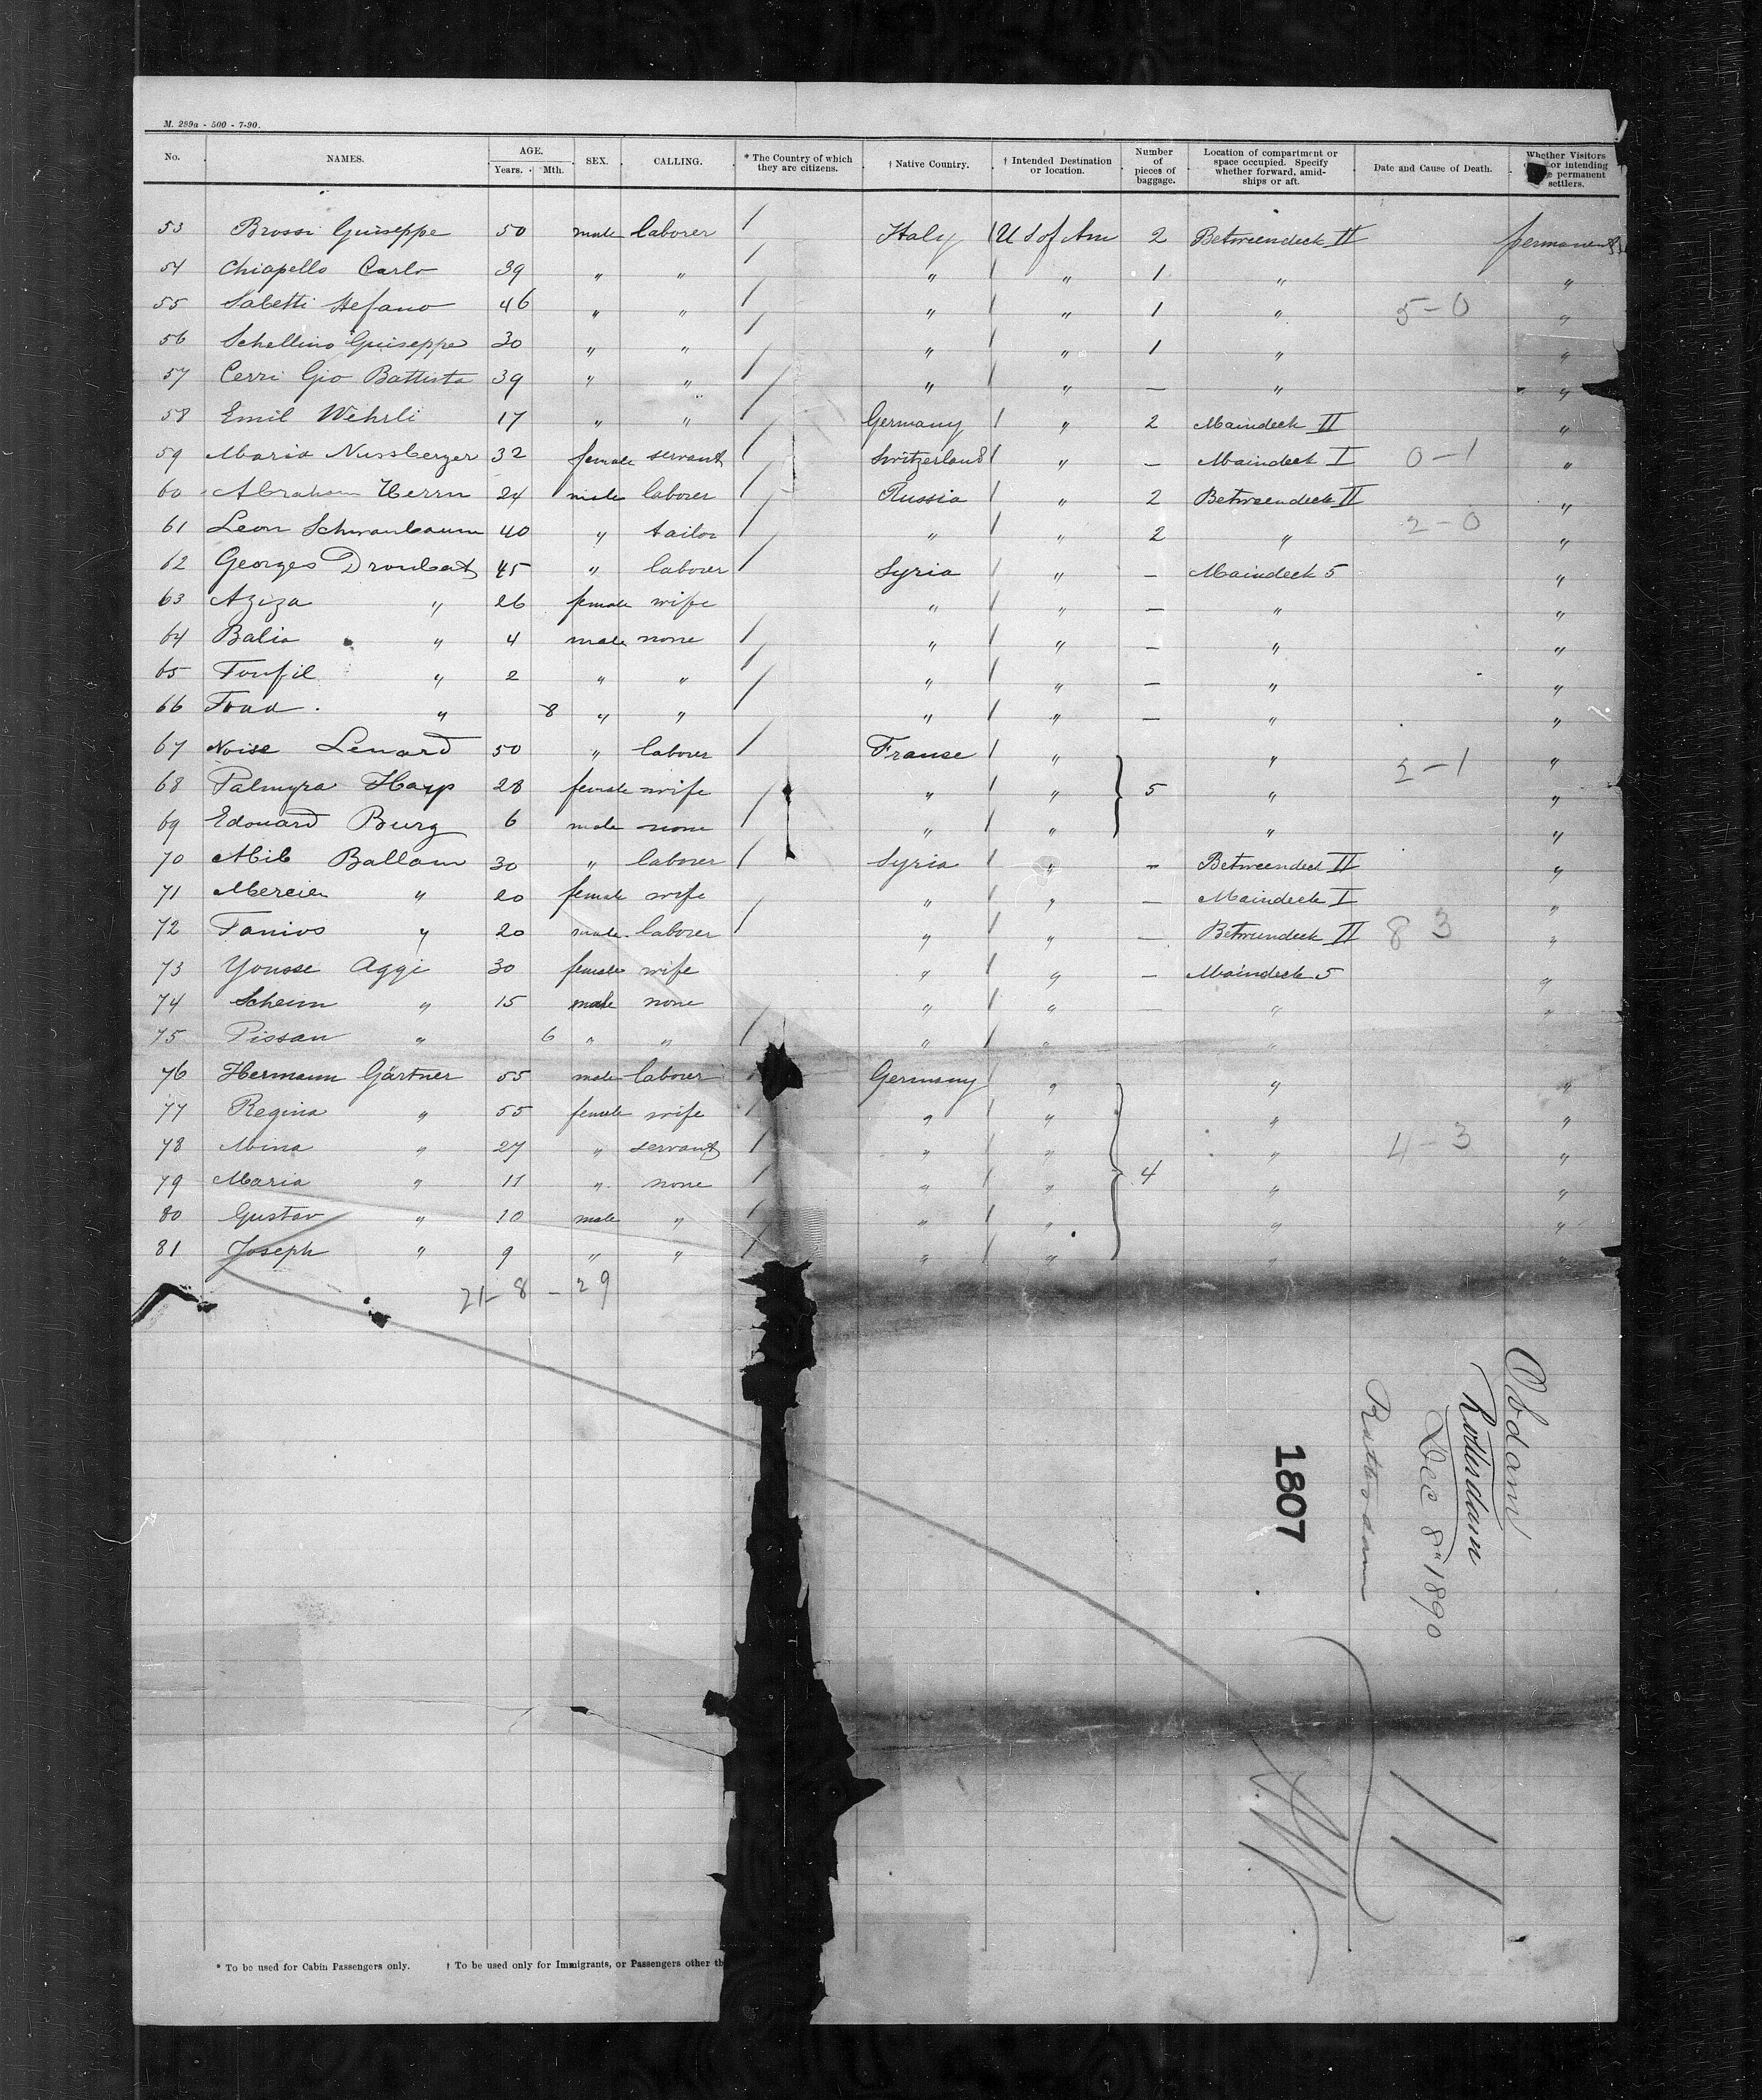 M. 299a - 500 - 7-90.
No. NAMES. AGE. Years. Mth. SEX. CALLING. * The Country of which they are citizens. † Native Country. † Intended Destination or location. Number of pieces of baggage. Location of compartment or space occupied. Specify whether forward, amidships or aft. Date and Cause of Death. Whether Visitors or intending permanent settlers.
53 Brossi Guiseppe 50 male laborer / Italy / U S of Am 2 Betweendeck II permanent
54 Chiapello Carlo 39 " " / " / " 1 " "
55 Sabetti Stefano 46 " " / " / " 1 " 5-0 "
56 Schellino Guiseppe 30 " " / " / " 1 " "
57 Cerri Gio Battista 39 " " / " / " — " "
58 Emil Wehrli 17 " " / Germany / " 2 Maindeck II "
59 Maria Nussberger 32 female servant / Switzerland / " — Maindeck I 0-1 "
60 Abraham Herrn 24 male laborer / Russia / " 2 Betweendeck II "
61 Leon Schwanbaum 40 " tailor / " / " 2 " 2-0 "
62 Georges Droubat 45 " laborer / Syria / " — Maindeck 5 "
63 Aziza " 26 female wife " / " — " "
64 Balia " 4 male none / " / " — " "
65 Toufil " 2 " " / " / " — " "
66 Foad " 8 " " / " / " — " "
67 Noise Lenard 50 " laborer / Franse / " " 2-1 "
68 Palmyra Hayp 28 female wife / " / " 5 " "
69 Edouard Burg 6 male none / " / " " "
70 Abib Ballam 30 " laborer / Syria / " — Betweendeck II "
71 Mercier " 20 female wife / " / " — Maindeck I "
72 Tanios " 20 male laborer / " / " — Betweendeck II 8 3 "
73 Yousse Aggi 30 female wife " / " — Maindeck 5 "
74 Scheun " 15 male none / " / " — " "
75 Pissan " 6 " " / " / " " "
76 Hermann Gärtner 55 male laborer Germany / " " "
77 Regina " 55 female wife / " / " " "
78 Mina " 27 " servant / " / " " 4-3 "
79 Maria " 11 " none / " / " 4 " "
80 Gustav " 10 male " / " / " " "
81 Joseph " 9 " " / " / " " "
21-8-29
Obdam
Rotterdam
Dec 8" 1890
Rotterdam
1807
11
* To be used for Cabin Passengers only. † To be used only for Immigrants, or Passengers other th